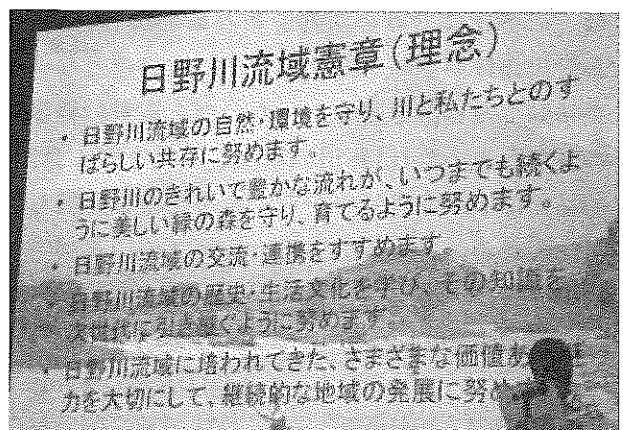 日野川流域憲章(理念)
・日野川流域の自然・環境を守り、川と私たちとのす
ばらしい共存に努めます。
・日野川のきれいで豊かな流れが、いつまでも続くよ
うに美しい緑の森を守り、育てるように努めます。
・日野川流域の交流・連携をすすめます。
・日野川流域の歴史・生活文化を学び、その知識を
次世代に引き継ぐように努めます。
・日野川流域に培われてきた、さまざまな価値あ
力を大切にして、継続的な地域の発展に努め